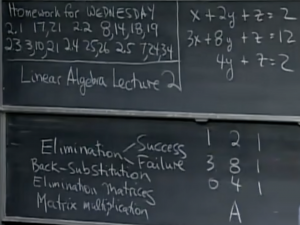 Homework for WEDNESDAY
2.1 17,21 2.2 8,14,18,19
2.3 3,10,21 2.4 25,26 2.5 7,24,34
Linear Algebra Lecture 2
x + 2y + z = 2
3x + 8y + z = 12
4y + z = 2
Elimination Success
Failure
Back-Substitution
Elimination Matrices
Matrix multiplication
1 2 1
3 8 1
0 4 1
A